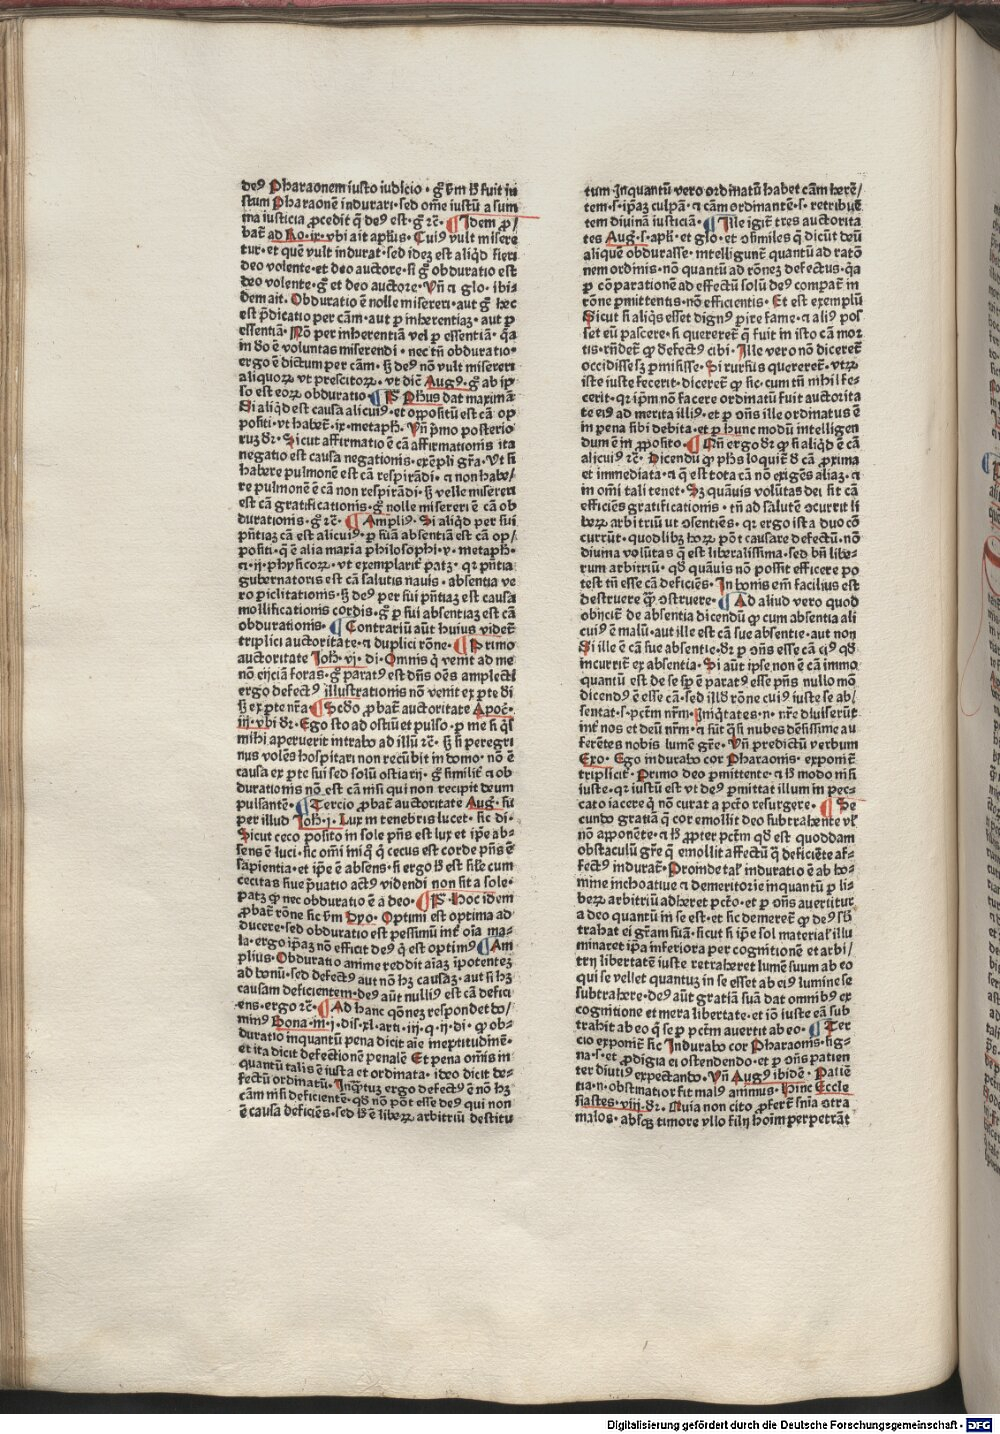 deꝰ Pharaonem iusto iudicio · g̃ vm̃ hͦ fuit iu
stum Pharaonē indurari · sed om̄e iustū a sum
ma iusticia ꝓcedit q̃ deꝰ est · g̃ ꝛc̃ · ¶ Idem ꝓ/
bat̃ ad Ro · ix · vbi ait apl̃us · Cuiꝰ vult misere
tur · et quē vult indurat · sed idez est aliqd̃ fieri
deo volente · et deo auctore · si g̃ obduratio est
deo volente · g̃ et deo auctore · Vñ a glo · ibi-
dem ait · Obduratio ē nolle misereri · aut g̃ hec
est p̃dicatio per cām · aut ꝑ inherentiaz · aut ꝑ
essentiā · Nō per inherentiā vel ꝑ essentiā · q̃a
in do ē voluntas miserendi · nec tñ obduratio ·
ergo ē dictum per cām · hͦ deꝰ nō vult misereri
aliquoꝝ vt prescitoꝝ · vt dic̃ Augꝰ · g̃ ab ip̃
so est eoꝝ obduratio · ¶ P̃ Ph̃us dat maximā
Si aliqd̃ est causa alicuiꝰ · et oppositū est cā op
positi · vt habet̃ · ix · metaph̃ · Vñ p̃mo posterio
rum dr̃ · Sicut affirmatio ē cā affirmationis ita
negatio est causa negationis · exēpli gr̃a · Vt si
habere pulmonē est cā respirādi · a non habe/
re pulmonē ē cā non respirādi · hͦ velle misereri
est cā gratificationis · g̃ nolle misereri ē cā ob
durationis · g̃ ꝛc̃ · ¶ Ampliꝰ · Si aliqd̃ per sui
pñtiaz cā est alicuiꝰ · ꝑ suā absentiā est cā op/
positi · q̃ ē alia maxīa philosophi · v · metaph̃ ·
a · ij · phisicoꝝ · vt exemplarit̃ patz · qꝛ pñtia
gubernatoris est cā salutis nauis · absentia ve
ro piclitationis · hͦ deꝰ per sui pñtiaz est causa
mollificationis cordis · g̃ ꝑ sui absentiaz est cā
obdurationis · ¶ Contrariū aūt huius videt̃
triplici auctoritate · a duplici rōne · ¶ Primo
auctoritate Ioh̃ · vj · di · Omnis q̇ venit ad me
nō eijciā foras · g̃ paratꝰ est dñs oēs amplecti
ergo defectꝰ illustrationis nō venit ex pte di
hͦ ex pte nr̃a · ¶ Scd̃o ꝓbat̃ auctoritate Apoc̃ ·
iij · vbi dr̃ · Ego sto ad ostiū et pulso · ꝑ me si q̇s
mihi aperuerit intrabo ad illū ꝛc̃ · hͦ si peregri
nus volēs hospitari non recūbit in domo · nō ē
causa ex pte sui sed solū ostiarij · g̃ similit̃ a ob
durationis nō est cā nisi qui non recipit deum
pulsantē · ¶ Tercio ꝓbat̃ auctoritate Augꝰ · sū
per illud Ioh̃ · j · Lux in tenebris lucet · sic di ·
Sicut ceco posito in sole pñs est lux et ip̃e ab-
sens ē luci · sic om̄i iniq̇ q̇ cecus est corde pñs ē
sapientia · et ip̃e ē absens · si ergo hͦ est sil̃e cum
cecitas siue p̃uatio actꝰ videndi non sit a sole ·
patz ꝙ nec obduratio ē a deo · ¶ P̃ · Hoc idem
ꝓbat̃ rōne sic vm̃ Dyo · Optimi est optima ad
ducere · sed obduratio est pessimū int̃ oīa ma-
la · ergo ip̃az nō efficit deꝰ q̇ est optimꝰ ¶ Am
plius · Obduratio anime reddit aīaz ipotentez
ad bonū · sed defectꝰ aut nō hz causaz · aut si hz
causam deficientem · deꝰ aūt nulliꝰ est cā defici
ens · ergo ꝛc̃ · ¶ Ad hanc qōnez respondet do/
minꝰ Bona · in · j · dis · xl · arti · iij · q · ij · di · ꝙ ob-
duratio inquantū pena dicit aīe ineptitudinē ·
et ita dicit defectionē penalē Et pena om̄is in
quantū talis ē iusta et ordinata · ideo dicit de-
fectū ordinatū · Inq̃tuz ergo defectꝰ ē nō hz
cām nisi deficientē · qd̃ nō pōt esse deꝰ qui non
ē causa deficiēs · sed hͦ ē liberꝝ arbitriū destitu
tum · Inquantū vero ordinatū habet cām herē/
tem · s · ip̃az culpā · a cām ordinantē · s · retribuē
tem diuinā iusticiā · ¶ Ille igit̃ tres auctorita
tes Augꝰ · s · apl̃i · et glo · et ꝯsimiles q̃ dicūt deū
aliquē obdurasse · intelligunt̃ quantū ad ratō
nem ordinis · nō quantū ad rōnez defectus · q̃a
ꝑ cōparationē ad effectū solū deꝰ compat̃ in
rōne ꝑmittentis · nō efficientis · Et est exemplū
Sicut si aliq̃s esset dignꝰ ꝑire fame · a aliꝰ pos
set eū pascere · si quereret̃ q̃ fuit in isto cā mor
tis · rñdet̃ ꝙ defectꝰ cibi · Ille vero nō diceret̃
occidisse sz ꝑmisisse · Si rursus quereret̃ · vtꝝ
iste iuste fecerit · diceret̃ ꝙ sic · cum tñ nihil fe-
cerit · qꝛ ip̃m nō facere ordinatū fuit auctorita
te eiꝰ ad merita illiꝰ · et ꝑ ꝯñs ille ordinatus ē
in pena sibi debita · et ꝑ hunc modū intelligen
dum ē in ꝓposito · ¶ Qñ ergo dr̃ ꝙ si aliqd̃ ē cā
alicuiꝰ ꝛc̃ · Dicendū ꝙ ph̃s loquit̃ d̃ cā ꝓxima
et immediata · a q̃ est tota cā nō exigēs aliaz · a
in om̄i tali tenet · Sz quāuis volūtas dei sit cā
efficiēs gratificationis · tñ ad salutē ꝯcurrit li
beꝝ arbitriū ut ꝯsentiēs · qꝛ ergo ista duo cō
currūt · quodlibꝫ hoꝝ pōt causare defectū · nō
diuina volūtas q̃ est liberalissima · sed bñ libe-
rum arbitriū · qd̃ quāuis nō possit efficere po
test tñ esse cā deficiēs · In bonis em̃ facilius est
destruere q̃ꝫ ꝯstruere · ¶ Ad aliud vero quod
obijcit̃ de absentia dicendū ꝙ cum absentia ali
cuiꝰ ē malū · aut ille est cā sue absentie · aut non
Si ille ē cā sue absentie · dr̃ ꝑ ꝯñs esse cā eiꝰ qd̃
incurrit̃ ex absentia · Si aūt ip̃se non ē cā immo
quantū est de se sp̃ ē paratꝰ esse pñs nullo mō
dicendꝰ ē esse cā · sed illd̃ rōne cuiꝰ iuste se ab/
sentat · s · pctm̃ nr̃m · Iniq̃tates · n · nr̃e diuiserūt
int̃ nos et deū nr̃m · a sūt q̃si nubes dēsissime au
ferētes nobis lumē gr̃e · Vñ predictū verbum
Exo · Ego indurabo cor Pharaonis · exponit̃
triplicit̃ · Primo deo ꝑmittente · a hͦ modo nisi
iuste · qꝛ iustū est vt deꝰ ꝑmittat illum in pec-
cato iacere q̇ nō curat a pcto resurgere · ¶ Se
cundo gratiā q̃ cor emollit deo subtrahente vl̃
nō apponēte · a hͦ ꝓpter pctm̃ qd̃ est quoddam
obstaculū gr̃e q̃ emollit affectū q̃ deficiēte af-
fectꝰ indurat̃ · Proinde tal̃ induratio ē ab ho-
mine inchoatiue a demeritorie inquantū ꝑ li-
beꝝ arbitriū adheret pcto · et ꝑ ꝯñs auertitur
a deo quantū in se est · et sic demeret̃ ꝙ deꝰ sb̃
trahat ei gr̃am suā · sicut si ip̃e sol material̃ illu
minaret ip̃a inferiora per cognitionē et arbi/
trij libertatē iuste retraheret lumē suum ab eo
qui se vellet quantuz in se esset ab eiꝰ lumine se
subtrahere · deꝰ aūt gratiā suā dat omnibꝰ ex
cognitione et mera libertate · et iō iuste eā sub
trahit ab eo q̇ se ꝑ pctm̃ auertit ab eo · ¶ Ter
cio exponit̃ sic Indurabo cor Pharaonis · sig-
na · s · et ꝓdigia ei ostendendo · et ꝑ ꝯñs patien
ter diutiꝰ expectando · Vñ Augꝰ ibidē · Patiē
tia · n · obstinatior fit malꝰ animus · Hinc Eccle
siastes · viij · dr̃ · Quia non cito ꝓfert̃ snīa ꝯtra
malos · absqꝫ timore vllo filij hoīm perpetrāt